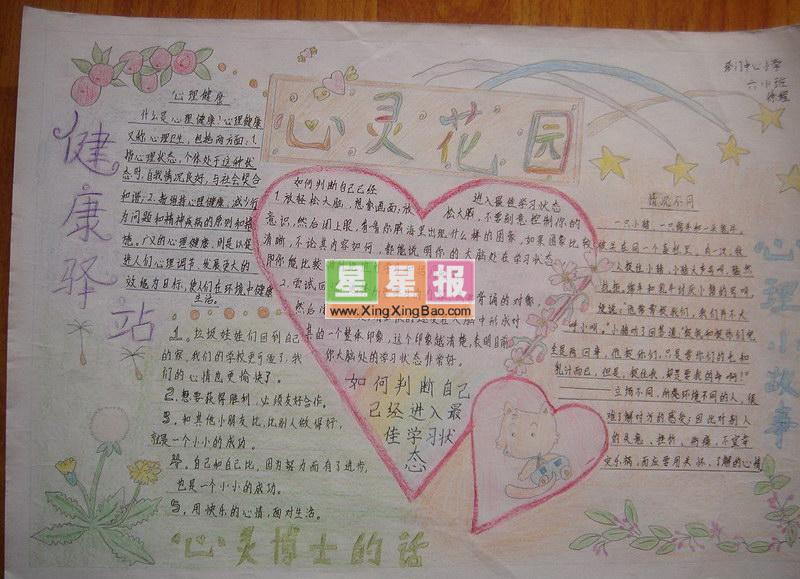 心灵花园
六小班
健康驿站
心理健康
什么是心理健康?心理健康
又称心理卫生,包括两方面:1.
指心理状态,个体处于这种状
态时,自我情况良好,与社会契合
和谐;2.
为问题和精神疾病的原则和措
施。广义的心理健康,则是以促
进人们心理调节、发展更大的
效能为目标,使人们在环境中健康
生活。
1。垃圾娃娃们回到自己
的家,我们的学校更干净了,我
们的心情也更愉快了。
2.想要获得胜利,必须友好合作。
3、和其他小朋友比,比别人做得好,
就是一个小小的成功。
4.自己和自己比,因为努力而有了进步,
也是一个小小的成功。
5、用快乐的心情,面对生活。
心灵博士的话
如何判断自己已经
进入最佳学习状态
1.放轻松大脑,想象画面:放
松大脑,不要刻意控制你的
意识,然后闭上眼,看看你脑海里出现什么样的图像,如果图象比较
清晰,不论其内容如何,都能说明你的大脑处在学习状态
即你能比较
2.尝试回
背诵的对像,
然后
大脑中形成对
其的一个整体印象,这个印象越清楚,表明目前
你大脑处的学习状态非常好。
如何判断自己
已经进入最
佳学习状
态
星星报
www.XingXingBao.com
情况不同
一只小猪、一只绵羊和一头乳牛,
被关在同一个畜栏里。有一次,牧
人捉住小猪,小猪大声号叫,猛烈
抗拒。绵羊和乳牛讨厌小猪的号叫,
便说:他常常捉我们,我们并不大
呼小叫。小猪听了回答道:捉我和捉你们完
全是两回事,他捉你们,只是要你们的毛和
乳汁而已,但是,捉住我,却是要我的命啊!”
立场不同,所处环境不同的人,很
难了解对方的感受;因此对别人
的失意、挫折、伤痛,不宜幸
灾乐祸,而应要用关怀、了解的心情
心理小故事